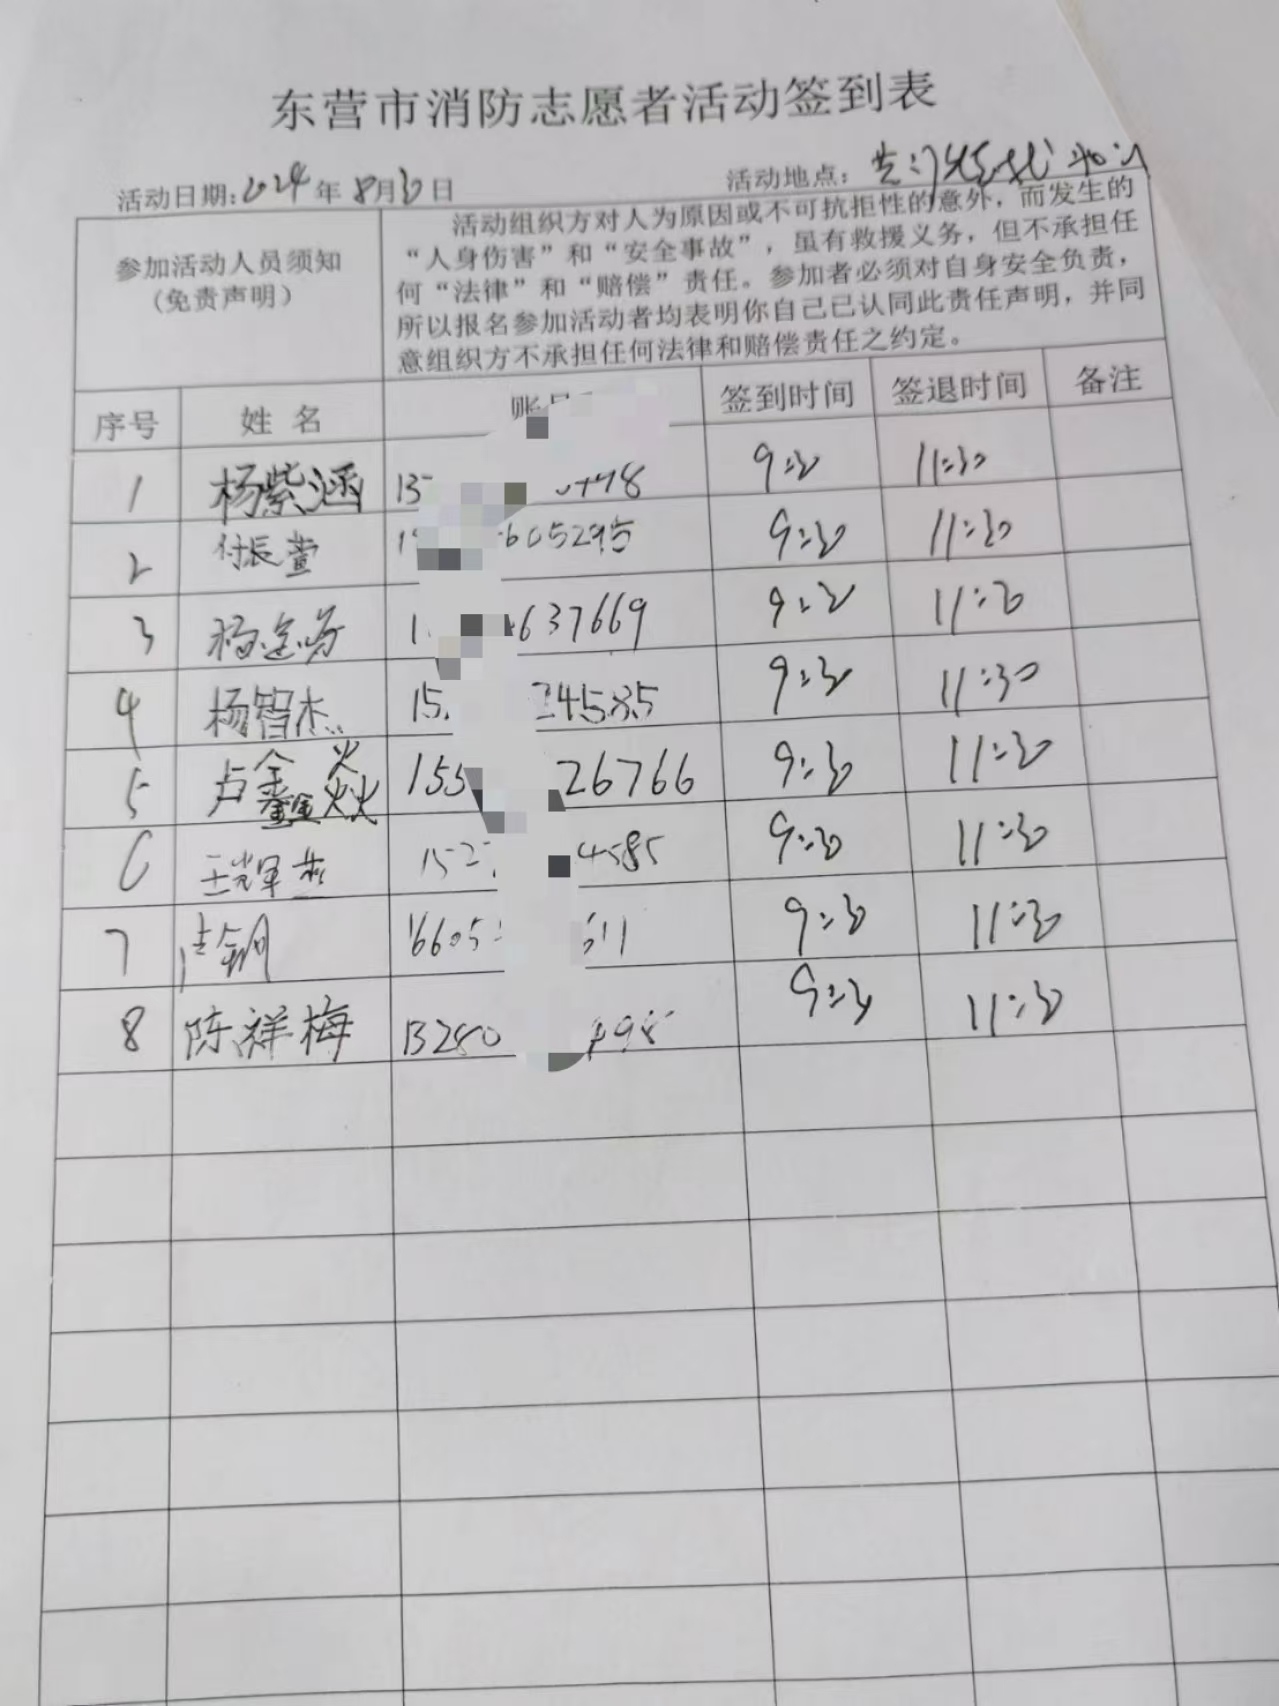 东营市消防志愿者活动签到表
活动日期:2024年8月30日 活动地点:
参加活动人员须知
(免责声明)
活动组织方对人为原因或不可抗拒性的意外，而发生的
“人身伤害”和“安全事故”，虽有救援义务，但不承担任
何“法律”和“赔偿”责任。参加者必须对自身安全负责，
所以报名参加活动者均表明你自己已认同此责任声明，并同
意组织方不承担任何法律和赔偿责任之约定。
序号 姓名 账号 签到时间 签退时间 备注
1 杨紫涵 13 78 9:30 11:30
2 付辰萱 1 605295 9:30 11:30
3 杨 1 637669 9:30 11:30
4 杨智杰 15 24585 9:30 11:30
5 卢鑫焱 155 26766 9:30 11:30
6 王辉 152 4585 9:30 11:30
7 6605 511 9:30 11:30
8 陈祥梅 13280 98 9:30 11:30